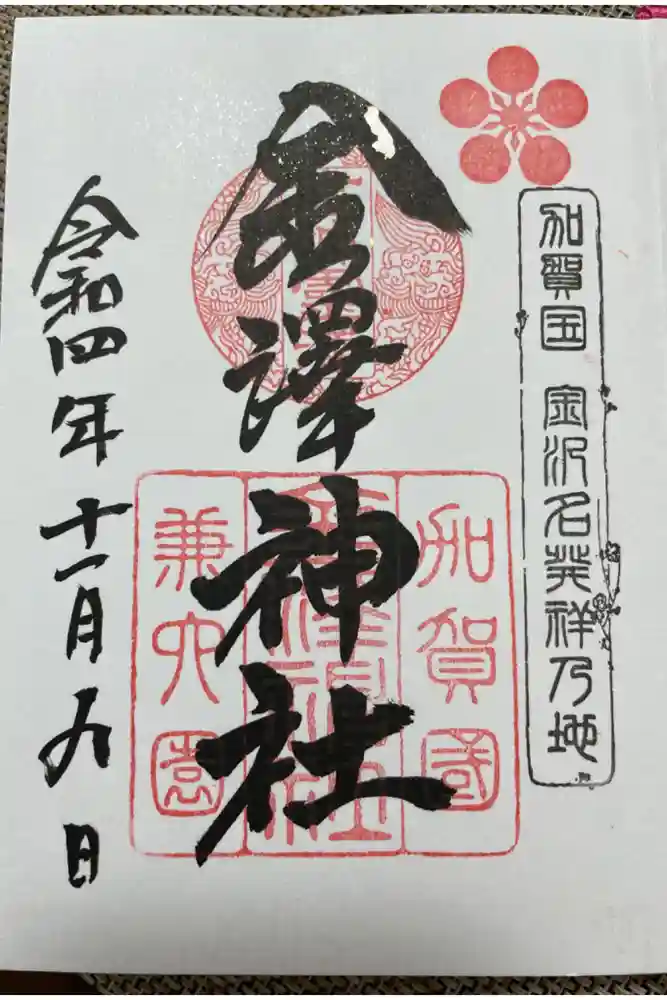 加賀国 金沢名発祥乃地
金澤神社
加賀國
金澤神社
兼六園
令和四年十一月九日